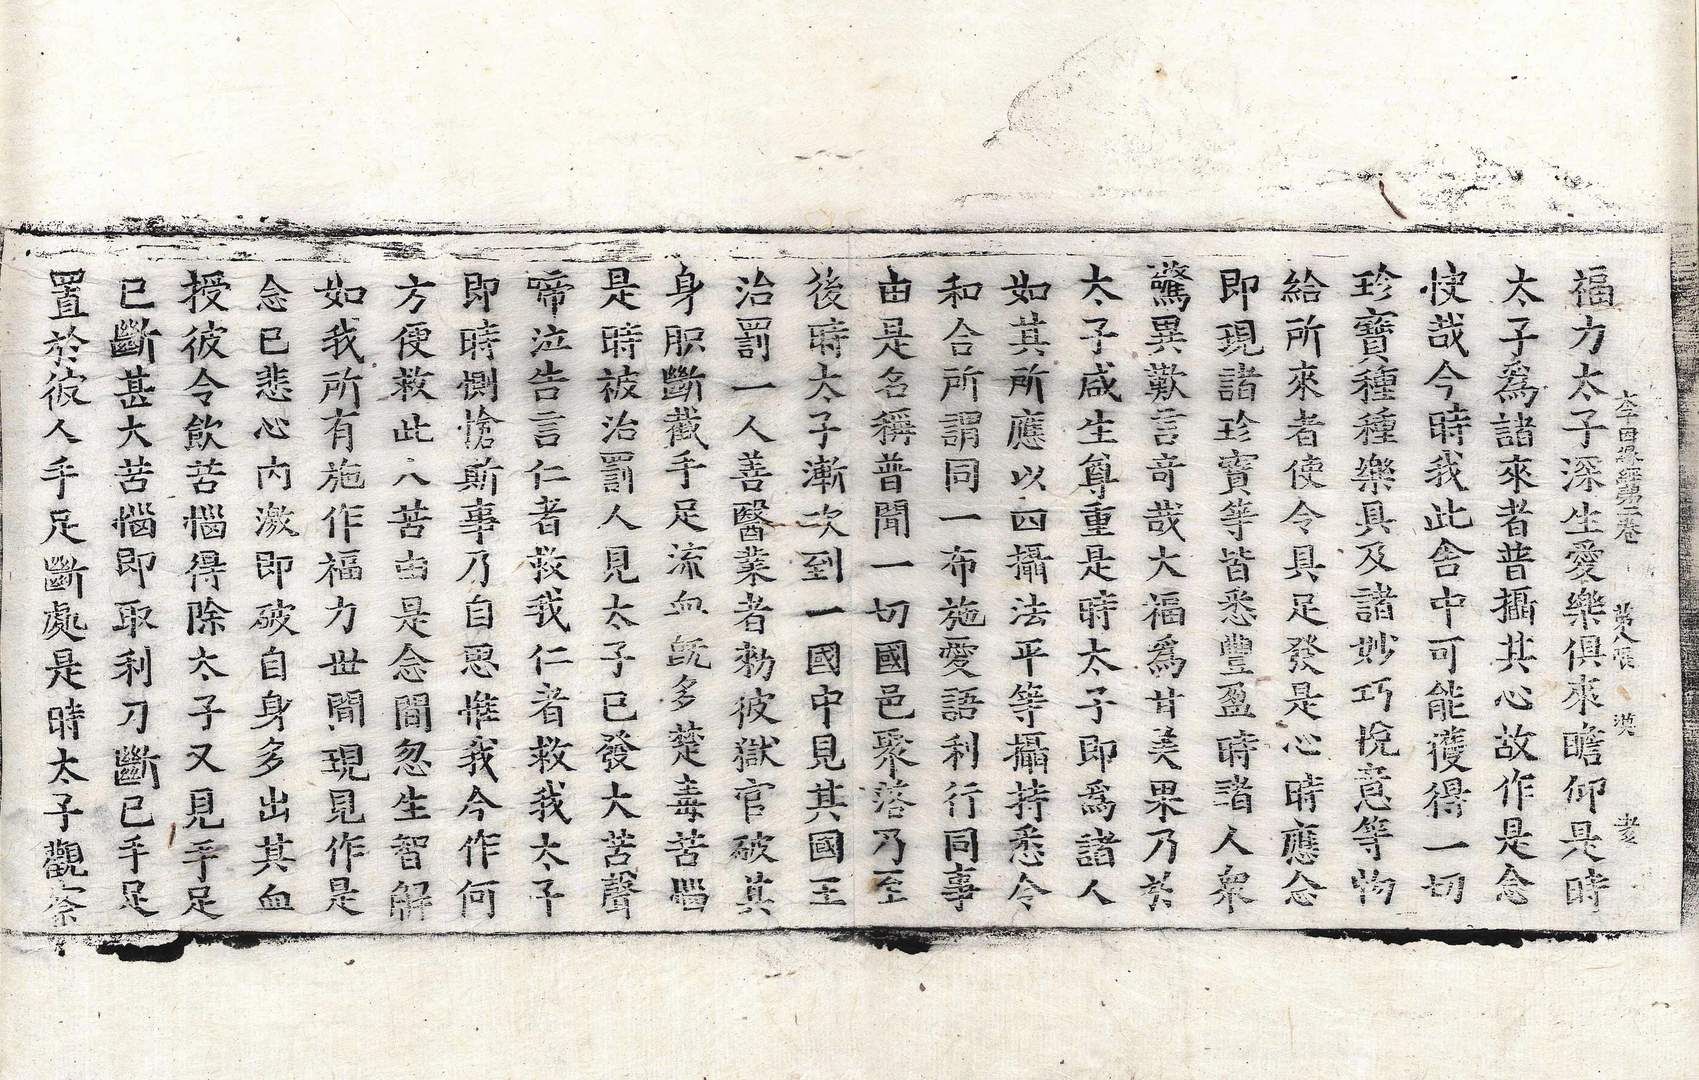 福力太子深生愛樂俱來瞻仰是時
太子爲諸來者普攝其心故作是念
快哉今時我此舍中可能獲得一切
珍寶種種樂具及諸妙巧悅意等物
給所來者使令具足發是心時應念
即現諸珍寶等皆悉豐盈時諸人衆
驚異歎言奇哉大福爲甘美果乃於
太子咸生尊重是時太子即爲諸人
如其所應以四攝法平等攝持悉令
和合所謂同一布施愛語利行同事
由是名稱普聞一切國邑聚落乃至
後時太子漸次到一國中見其國王
治罰一人善醫業者勑彼獄官破其
身胑斷截手足流血旣多楚毒苦惱
是時被治罰人見太子已發大苦聲
啼泣告言仁者救我仁者救我太子
即時惻愴斯事乃自思惟我今作何
方便救此人苦由是念間忽生智解
如我所有施作福力世間現見作是
念已悲心內激即破自身多出其血
授彼令飮苦惱得除太子又見手足
已斷甚大苦惱即取利刀斷已手足
置於彼人手足斷處是時太子觀察